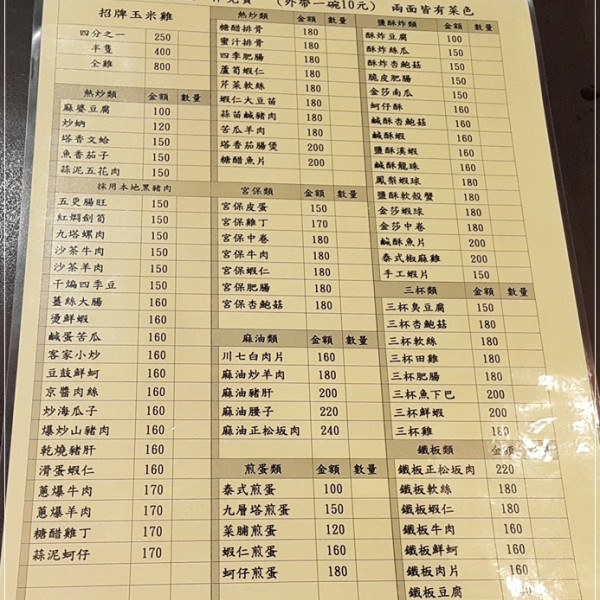 (外帶一碗10元) 兩面皆有菜色
招牌玉米雞
四分之一 250
半隻 400
全雞 800
熱炒類 金額 數量
麻婆豆腐 100
炒蚋 120
塔香文蛤 150
魚香茄子 150
蒜泥五花肉 150
採用本地黑豬肉
五更腸旺 150
紅燜劍筍 150
九塔螺肉 150
沙茶牛肉 150
沙茶羊肉 150
干煸四季豆 150
薑絲大腸 160
燙鮮蝦 160
鹹蛋苦瓜 160
客家小炒 160
豆鼓鮮蚵 160
京醬肉絲 160
炒海瓜子 160
爆炒山豬肉 160
乾燒豬肝 160
滑蛋蝦仁 160
蔥爆牛肉 170
蔥爆羊肉 170
糖醋雞丁 170
蒜泥蚵仔 170
熱炒類 金額 數量
糖醋排骨 180
蜜汁排骨 180
四季肥腸 180
蘆筍蝦仁 180
芹菜軟絲 180
蝦仁大豆苗 180
蒜苗鹹豬肉 180
苦瓜羊肉 180
塔香茄腸煲 200
糖醋魚片 200
宮保類 金額 數量
宮保皮蛋 150
宮保雞丁 170
宮保中卷 180
宮保牛肉 180
宮保蝦仁 180
宮保肥腸 180
宮保杏鮑菇 180
麻油類 金額 數量
川七白肉片 160
麻油炒羊肉 180
麻油豬肝 200
麻油腰子 220
麻油正松坂肉 240
煎蛋類 金額 數量
泰式煎蛋 100
九層塔煎蛋 150
菜脯煎蛋 120
蝦仁煎蛋 160
蚵仔煎蛋 180
鹽酥炸類 金額 數量
酥炸豆腐 100
酥炸絲瓜 150
酥炸杏鮑菇 150
脆皮肥腸 150
金莎南瓜 150
蚵仔酥 160
鹹酥杏鮑菇 160
鹹酥蝦 160
鹽酥溪蝦 160
鹹酥龍珠 160
鳳梨蝦球 160
鹽酥軟殼蟹 180
金莎蝦球 180
金莎中卷 180
鹹酥魚片 180
泰式椒麻雞 150
手工蝦片 150
三杯類 金額 數量
三杯臭豆腐 150
三杯杏鮑菇 180
三杯軟絲 180
三杯田雞 180
三杯肥腸 180
三杯魚下巴 200
三杯鮮蝦 200
三杯雞 180
鐵板類 金額 數量
鐵板正松坂肉 220
鐵板軟絲 180
鐵板蝦仁 180
鐵板牛肉 160
鐵板鮮蚵 160
鐵板肉片 160
鐵板豆腐